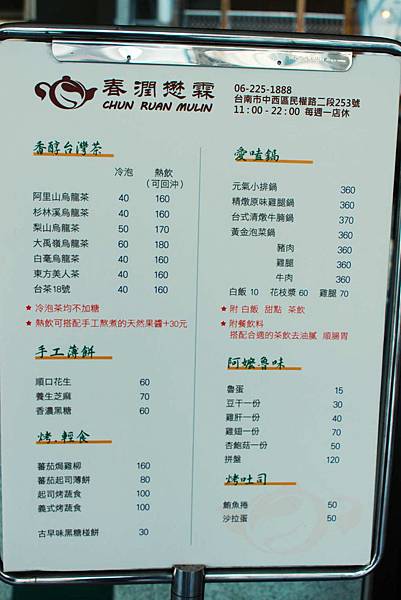 春潤楙霖
CHUN RUAN MULIN
06-225-1888
台南市中西區民權路二段253號
11：00 - 22：00 每週一店休
香醇台灣茶
冷泡 熱飲
(可回沖)
阿里山烏龍茶 40 160
杉林溪烏龍茶 40 160
梨山烏龍茶 50 170
大禹嶺烏龍茶 60 180
白毫烏龍茶 40 160
東方美人茶 40 160
台茶18號 40 160
★ 冷泡茶均不加糖
★ 熱飲可搭配手工熬煮的天然果醬+30元
手工薄餅
順口花生 60
養生芝麻 70
香濃黑糖 60
烤.輕食
蕃茄焗雞柳 160
蕃茄起司薄餅 80
起司烤蔬食 100
義式烤蔬食 100
古早味黑糖椪餅 30
愛嗑鍋
元氣小排鍋 360
精燉原味雞腿鍋 360
台式清燉牛腩鍋 370
黃金泡菜鍋 360
豬肉 360
雞腿 360
牛肉 360
白飯 10 花枝漿 60 雞腿 70
★ 附 白飯 甜點 茶飲
★ 附餐飲料
搭配合適的茶飲去油膩 順腸胃
阿嬤魯味
魯蛋 15
豆干一份 30
雞肝一份 40
雞翅一份 70
杏鮑菇一份 50
拼盤 120
烤吐司
鮪魚捲 50
沙拉蛋 50